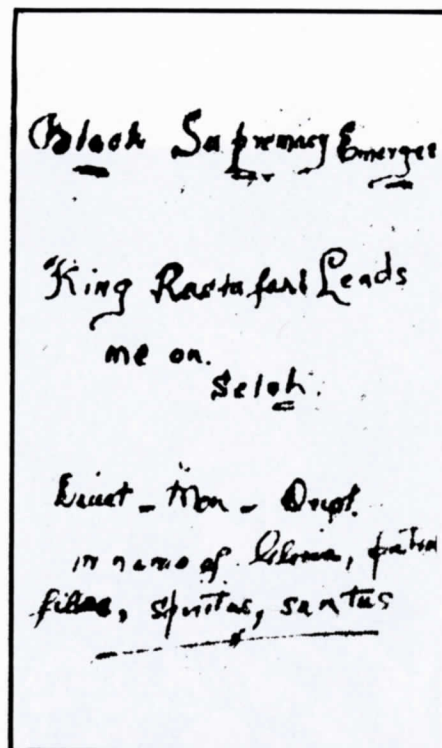 Black Supremacy Emerges
"King Rastafari Leads
me on.
Selah.
in name of Gloria, patria
filiae, spiritus, santus